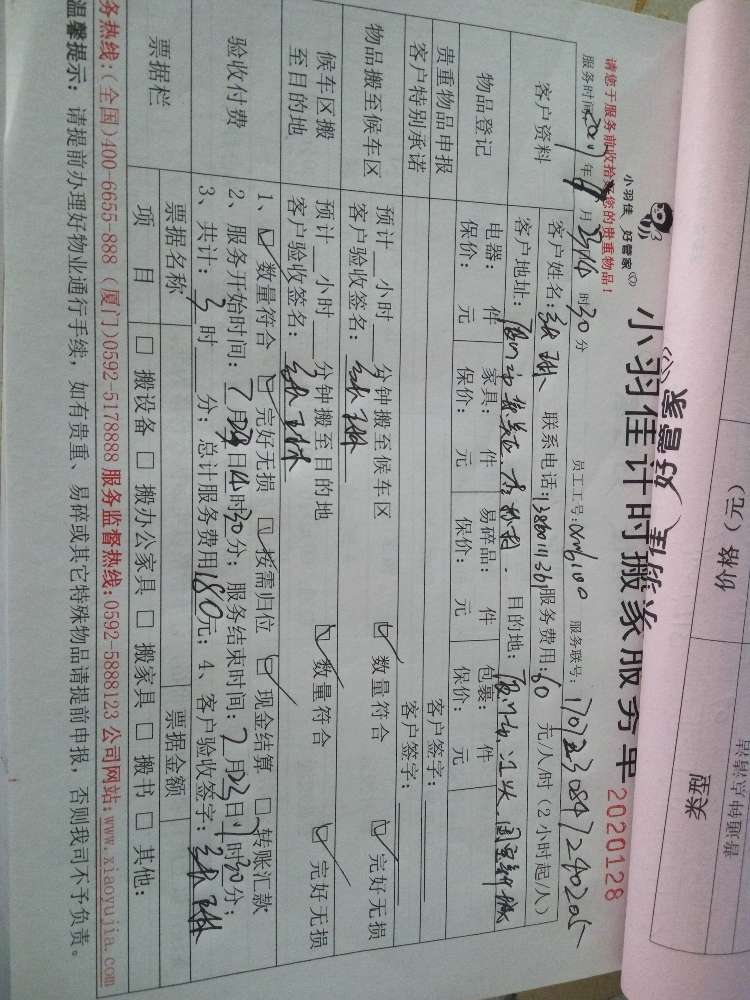 价格（元）
类型
小羽佳 好管家
小羽佳（好管家）计时搬家服务单
2020128
请您于服务前收拾好您的贵重物品！
服务时间：2017年 月 时30分
员工工号：xm6100
服务联号：
客户资料
客户姓名： 联系电话： 服务费用：60元/人/时（2小时起/人）
客户地址： 目的地：
物品登记
电器： 件 家具： 件 易碎品： 件 包裹： 件
保价： 元 保价： 元 保价： 元 保价： 元
贵重物品申报 客户签字：
客户特别承诺 客户签字：
物品搬至候车区
预计 小时 分钟搬至候车区 ☑ 数量符合 ☑ 完好无损
客户验收签名：
候车区搬至目的地
预计 小时 分钟搬至目的地 ☑ 数量符合 ☑ 完好无损
客户验收签名：
验收付费
1、☑ 数量符合 ☑ 完好无损 ☑ 按需归位 ☑ 现金结算 □ 转账汇款
2、服务开始时间：7月23日14时30分；服务结束时间：7月23日17时30分；
3、共计：3时 分；总计服务费用180元；4、客户验收签字：
票据栏
票据名称 票据金额
项 目 □ 搬设备 □ 搬办公家具 □ 搬家具 □ 搬书 □ 其他：
务热线：(全国)400-6655-888 (厦门)0592-5178888 服务监督热线：0592-5888123 公司网站：www.xiaoyujia.com
温馨提示：请提前办理好物业通行手续，如有贵重、易碎或其它特殊物品请提前申报，否则我司不予负责。